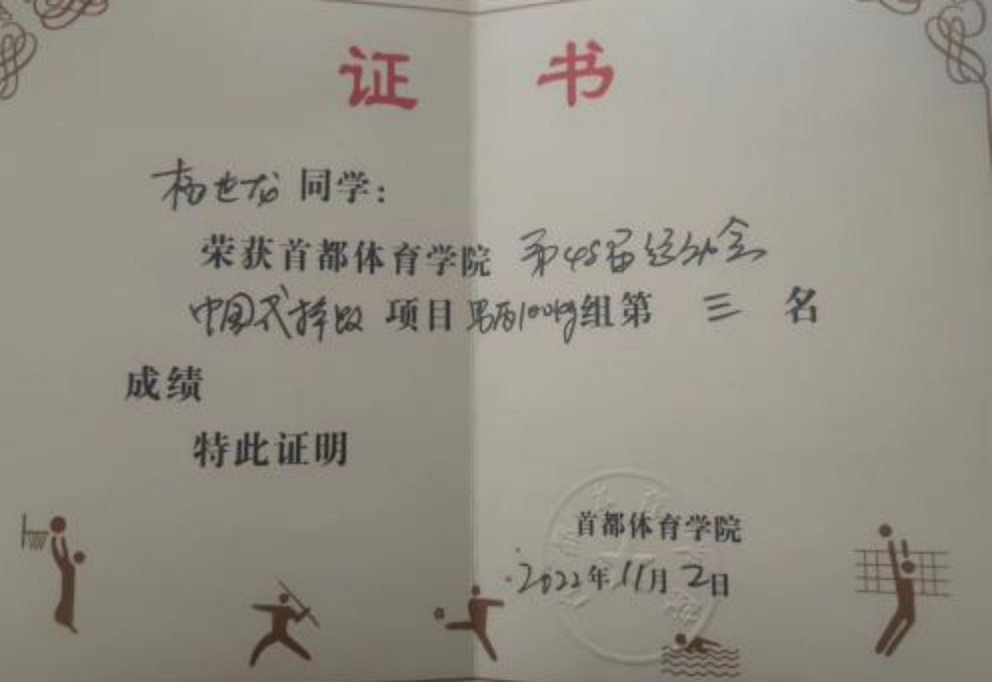 证 书
杨世龙 同学：
荣获首都体育学院 第45届运动会
中国式摔跤 项目 男丙100kg组第 三 名
成绩
特此证明
首都体育学院
2022年11月2日